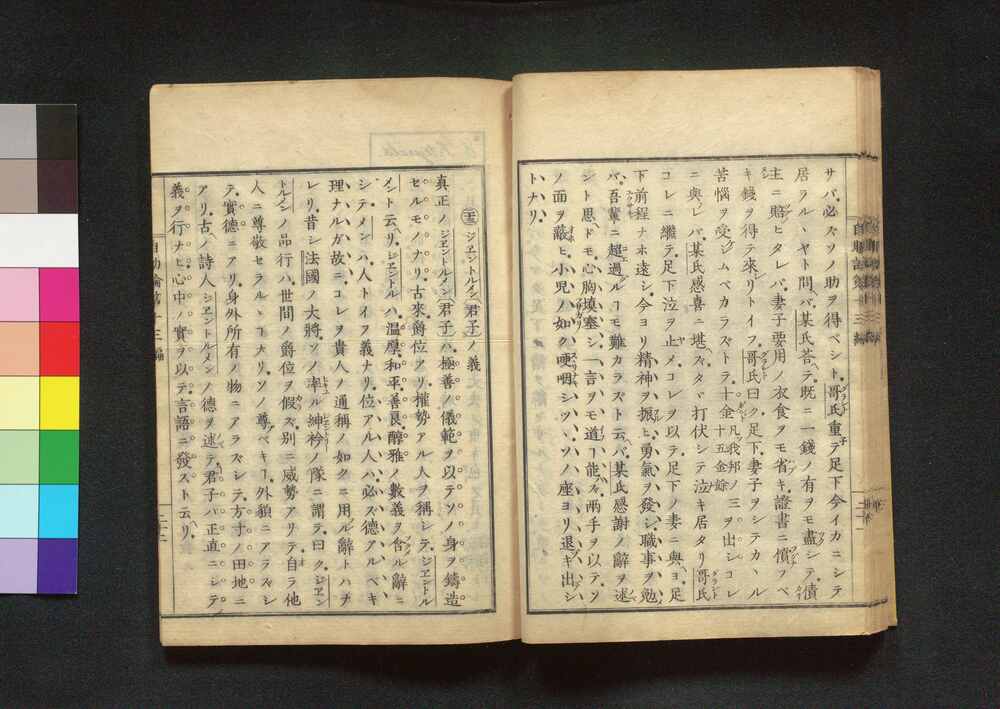 サバ、必ズソノ助ヲ得ベシト、哥氏重テ足下今イカニシテ
居ラルヽヤト問バ、某氏荅ヘテ、既ニ一錢ノ有ヲモ盡シテ、債
主ニ賠ヒタレバ、妻子要用ノ衣食ヲモ省キ、證書ニ償フベ
キ錢ヲ得テ來レリトイフ、哥氏曰ク、足下妻子ヲシテカヽル
苦惱ヲ受シムベカラズトテ、十金凡我邦ノ五十金餘三ヲ出シコレ
ニ與レバ、某氏感喜ニ堪ズ、タヾ打伏シテ泣キ居タリ、哥氏
コレニ繼テ、足下泣ヲ止メ、コレヲ以テ足下ノ妻ニ與ヨ、足
下前程ナホ遠シ、今ヨリ精神ヲ振ヒ勇氣ヲ發シ、職事ヲ勉
バ、吾輩ニ超過ルヿモ難カラズト云バ、某氏感謝ノ辭ヲ述
ント思ドモ、心胸填塞シ、一言ヲモ道ヿ能ズ、兩手ヲ以テ、ソ
ノ面ヲ蔽ヒ、小児ノ如ク哽咽シツヽ、ソノ座ヨリ退キ出シ
トナリ、
自助論第十三編
二十二
㊂ ジエントルメン(君子)ノ義
真正ノジエントルメン(君子)ハ、極善ノ儀範ヲ以テ、ソノ身ヲ鑄造
セルモノナリ、古來爵位アリ、權勢アル人ヲ稱シテ、ジエントル
メント云ヘリ、ジエントルハ、温厚和平善良醇雅ノ數義ヲ含ル辭ニ
シテ、メンハ、人トイフ義ナリ、位アル人ハ必ズ德アルベキ
理ナルガ故ニ、コレヲ貴人ノ通稱ノ如クニ用ル辭トハナ
レリ、昔シ法國ノ大將、ソノ率ル紳衿ノ隊ニ謂テ曰ク、ジエン
トルメンノ品行ハ、世間ノ爵位ヲ假ズ、別ニ威勢アリテ、自ラ他
人ニ尊敬セラルヽヿナリ、ソノ尊ベキヿ、外貌ニアラズシ
テ、實德ニアリ、身外所有ノ物ニアラズシテ、方寸ノ田地ニ
アリ、古ノ詩人、ジエントルメンノ德ヲ述テ、君子ハ正直ニシテ
義ヲ行ナヒ、心中ノ實ヲ以テ、言語ニ發スト云リ、
自助論第十三編